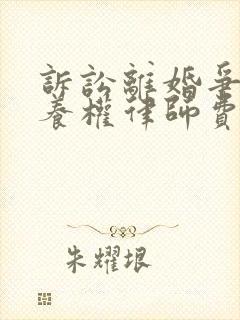 訴訟離婚爭
養權律師費
朱耀垠